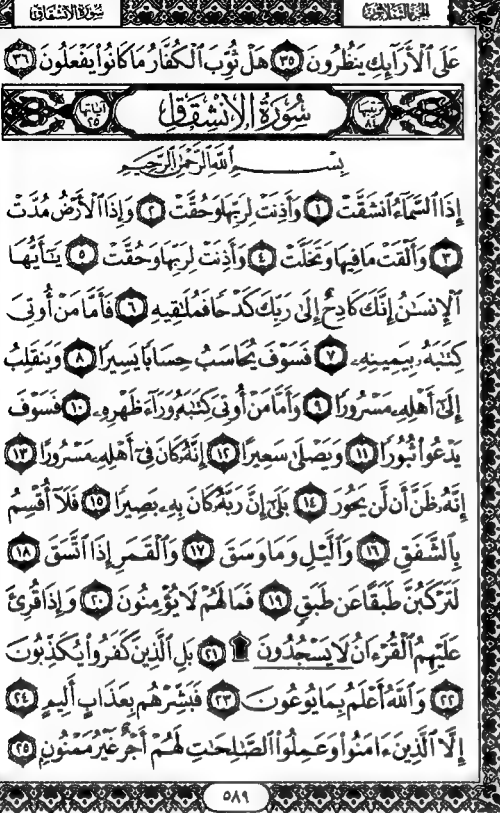 سُورَةُ الانشِقَاقِ الجُزءُ الثَّلاثُونَ
عَلَى ٱلۡأَرَآئِكِ يَنظُرُونَ ٣٥ هَلۡ ثُوِّبَ ٱلۡكُفَّارُ مَا كَانُواْ يَفۡعَلُونَ ٣٦
ترتيبها ٨٤ سُورَةُ الانشِقَاقِ آياتها ٢٥
بِسۡمِ ٱللَّهِ ٱلرَّحۡمَٰنِ ٱلرَّحِيمِ
إِذَا ٱلسَّمَآءُ ٱنشَقَّتۡ ١ وَأَذِنَتۡ لِرَبِّهَا وَحُقَّتۡ ٢ وَإِذَا ٱلۡأَرۡضُ مُدَّتۡ
٣ وَأَلۡقَتۡ مَا فِيهَا وَتَخَلَّتۡ ٤ وَأَذِنَتۡ لِرَبِّهَا وَحُقَّتۡ ٥ يَٰٓأَيُّهَا
ٱلۡإِنسَٰنُ إِنَّكَ كَادِحٌ إِلَىٰ رَبِّكَ كَدۡحٗا فَمُلَٰقِيهِ ٦ فَأَمَّا مَنۡ أُوتِيَ
كِتَٰبَهُۥ بِيَمِينِهِۦ ٧ فَسَوۡفَ يُحَاسَبُ حِسَابٗا يَسِيرٗا ٨ وَيَنقَلِبُ
إِلَىٰٓ أَهۡلِهِۦ مَسۡرُورٗا ٩ وَأَمَّا مَنۡ أُوتِيَ كِتَٰبَهُۥ وَرَآءَ ظَهۡرِهِۦ ١٠ فَسَوۡفَ
يَدۡعُواْ ثُبُورٗا ١١ وَيَصۡلَىٰ سَعِيرًا ١٢ إِنَّهُۥ كَانَ فِيٓ أَهۡلِهِۦ مَسۡرُورًا ١٣
إِنَّهُۥ ظَنَّ أَن لَّن يَحُورَ ١٤ بَلَىٰٓ إِنَّ رَبَّهُۥ كَانَ بِهِۦ بَصِيرٗا ١٥ فَلَآ أُقۡسِمُ
بِٱلشَّفَقِ ١٦ وَٱلَّيۡلِ وَمَا وَسَقَ ١٧ وَٱلۡقَمَرِ إِذَا ٱتَّسَقَ ١٨
لَتَرۡكَبُنَّ طَبَقًا عَن طَبَقٖ ١٩ فَمَا لَهُمۡ لَا يُؤۡمِنُونَ ٢٠ وَإِذَا قُرِئَ
عَلَيۡهِمُ ٱلۡقُرۡءَانُ لَا يَسۡجُدُونَ ۩ ٢١ بَلِ ٱلَّذِينَ كَفَرُواْ يُكَذِّبُونَ
٢٢ وَٱللَّهُ أَعۡلَمُ بِمَا يُوعُونَ ٢٣ فَبَشِّرۡهُم بِعَذَابٍ أَلِيمٍ ٢٤
إِلَّا ٱلَّذِينَ ءَامَنُواْ وَعَمِلُواْ ٱلصَّٰلِحَٰتِ لَهُمۡ أَجۡرٌ غَيۡرُ مَمۡنُونِۭ ٢٥
٥٨٩